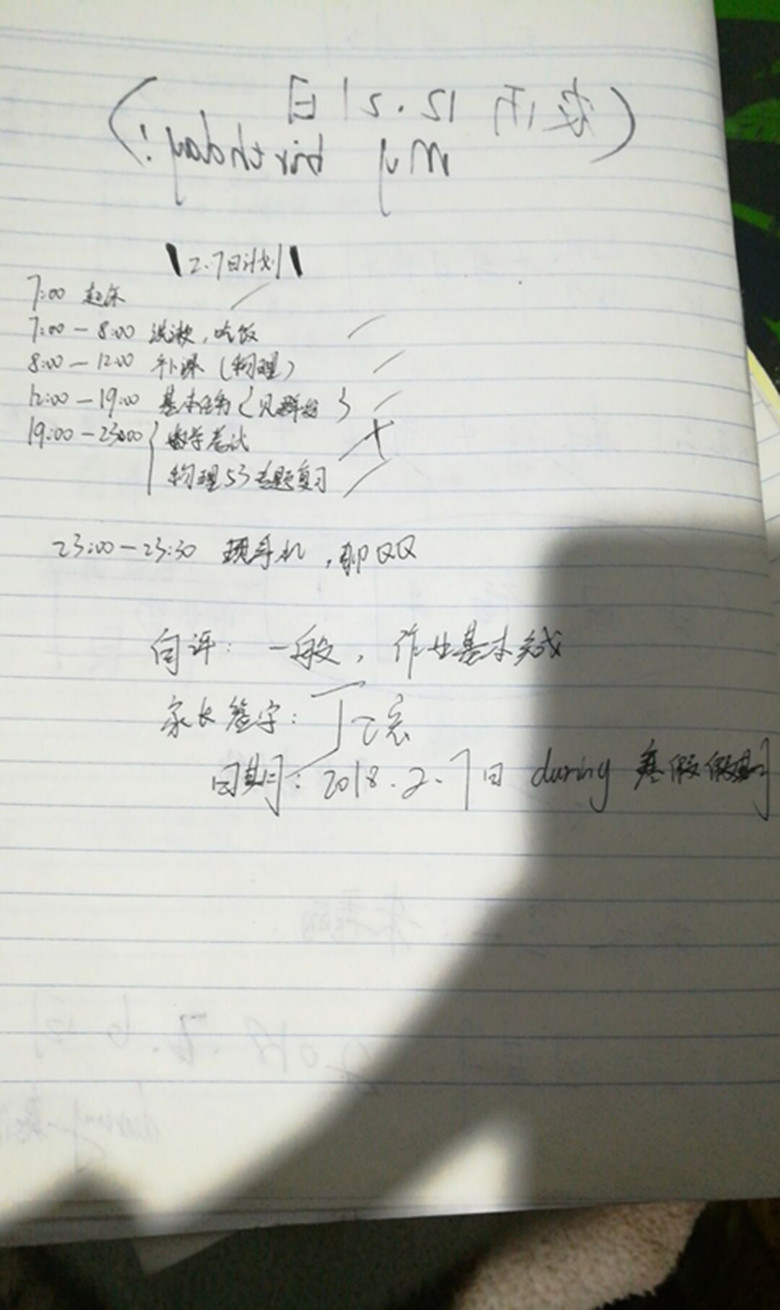 (农历 12.21日
My birthday!)
2.7日计划
7:00 起床
7:00-8:00 洗漱,吃饭
8:00-12:00 补课(物理)
12:00-19:00 基本任务{见群投}
19:00-23:00 数学考试
物理53专题复习
23:00-23:30 玩手机,聊QQ
自评:一般,作业基本完成
家长签字:丁
日期:2018.2.7日 during 寒假假期
2018.2.6日
during 寒